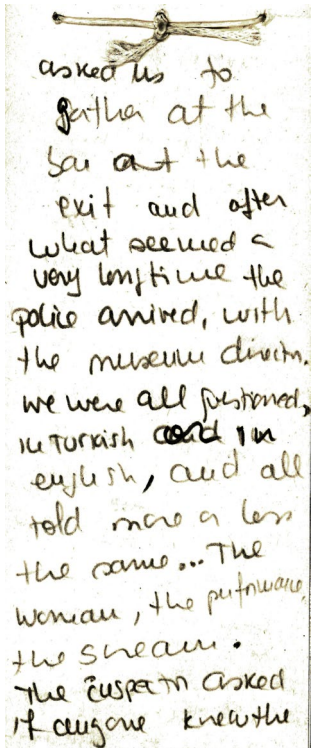 asked us to
gather at the
bar at the
exit and after
what seemed a
very long time the
police arrived, with
the museum director.
we were all questioned,
in Turkish and in
english, and all
told more or less
the same... The
woman, the performance,
the scream.
The inspector asked
if anyone knew the